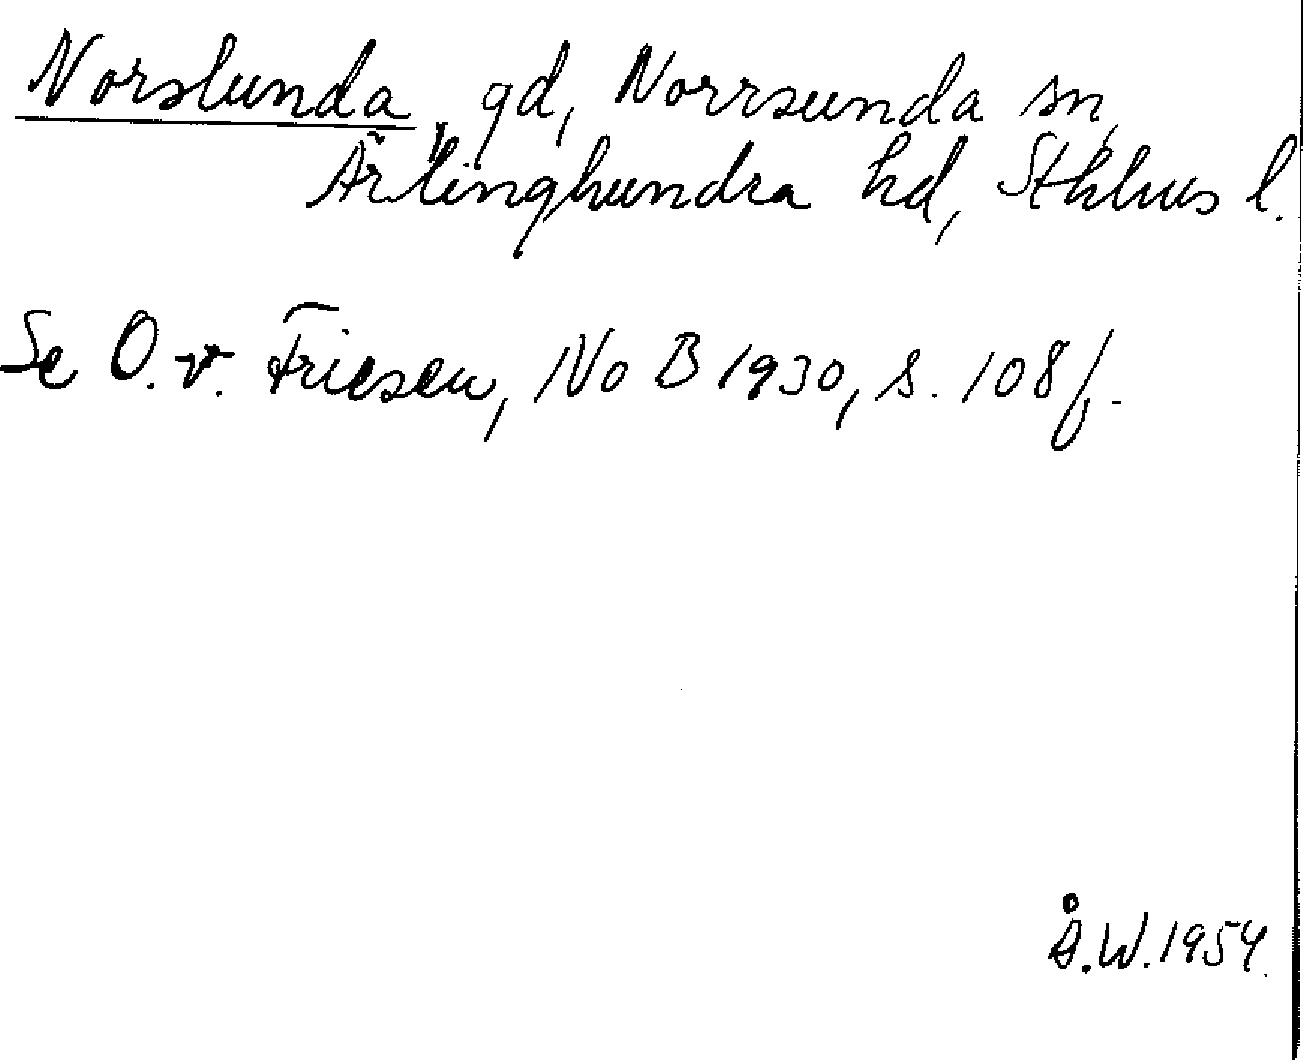 Norslunda, gd, Norrsunda sn,
Ärlinghundra hd, Sthlms l.
Se O. v. Friesen, NoB 1930, s. 108 f.
Å.W. 1954.